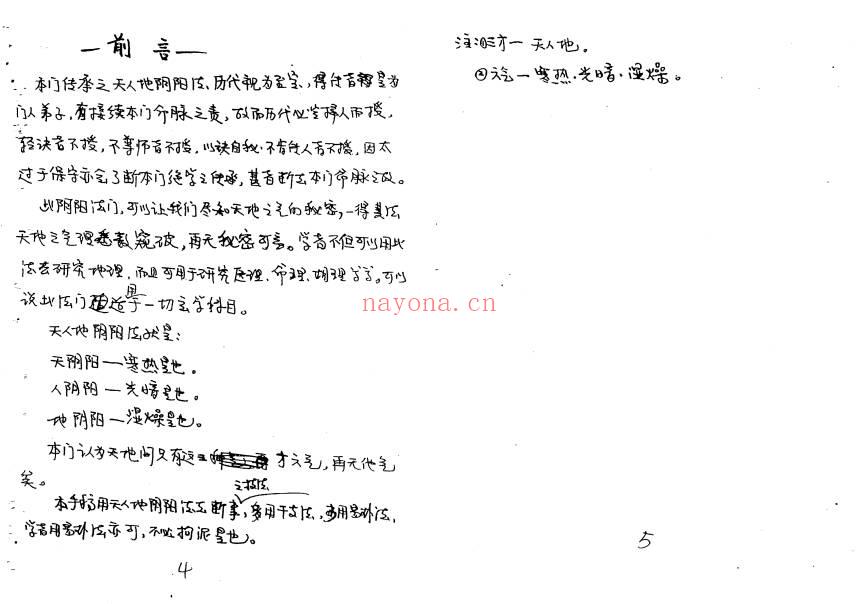 一前 言一
本门传承之天人地阴阳法,历代视为至宝,得传者都是为
门人弟子,有接续本门命脉之责,故而历代必堂择人而授,
轻诀者不授,不尊师者不授,以诀自私·不肯传人者不授,因太
过于保守亦会了断本门绝学之传承,甚者断去本门命脉之故。
此阴阳法门,可以让我们尽知天地之气的秘密,一得其法
天地之气理悉数窥破,再无秘密可言。学者不但可以用此
法去研究地理,而且可用于研究医理、命理、相理等等。可以
说此法门适用于一切玄学科目。
天人地阴阳法就是:
天阴阳一寒热是也。
人阴阳一光暗是也。
地阴阳一湿燥是也。
本门认为天地间只有这三才六气,再无他气
矣。
之技法
本手稿用天人地阴阳法去断事,多用干支法,少用易卦法,
学者用易卦法亦可,不必拘泥是也。
4
注:①三才一天人地。
②六气一寒热·光暗·湿燥。
5
nayona.cn